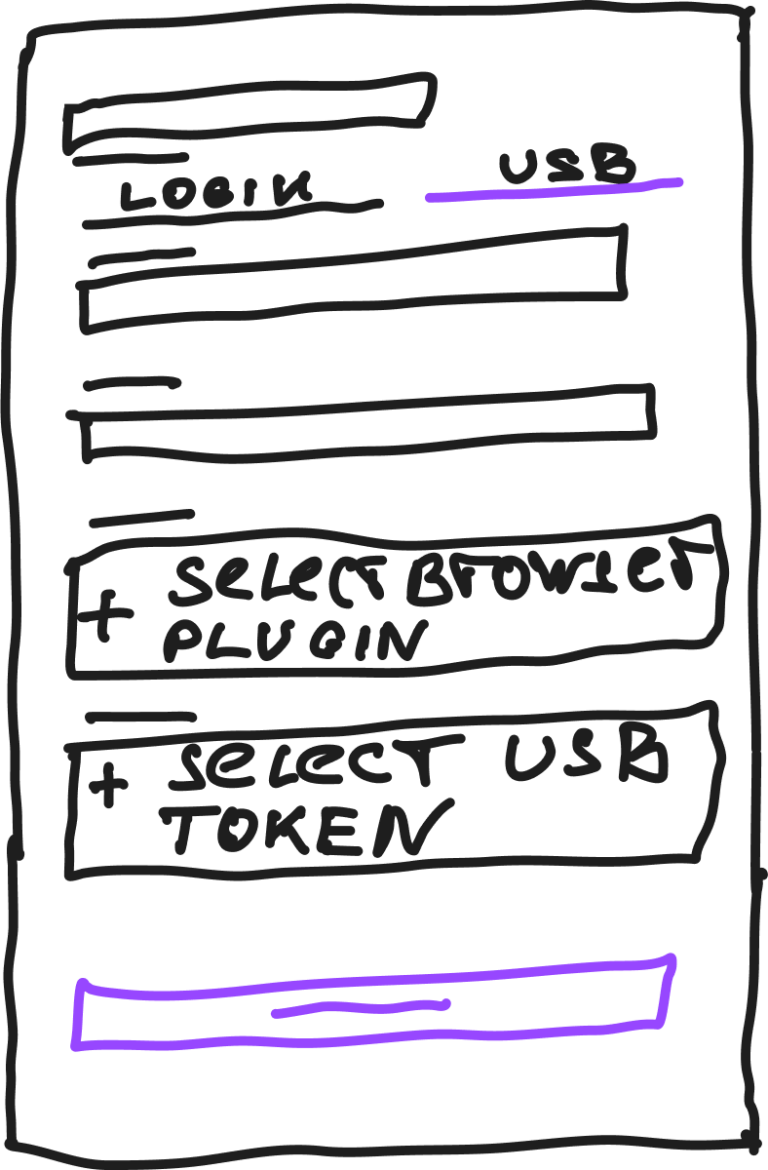 LOGIN
USB
+ SELECT BROWSER
PLUGIN
+ SELECT USB
TOKEN